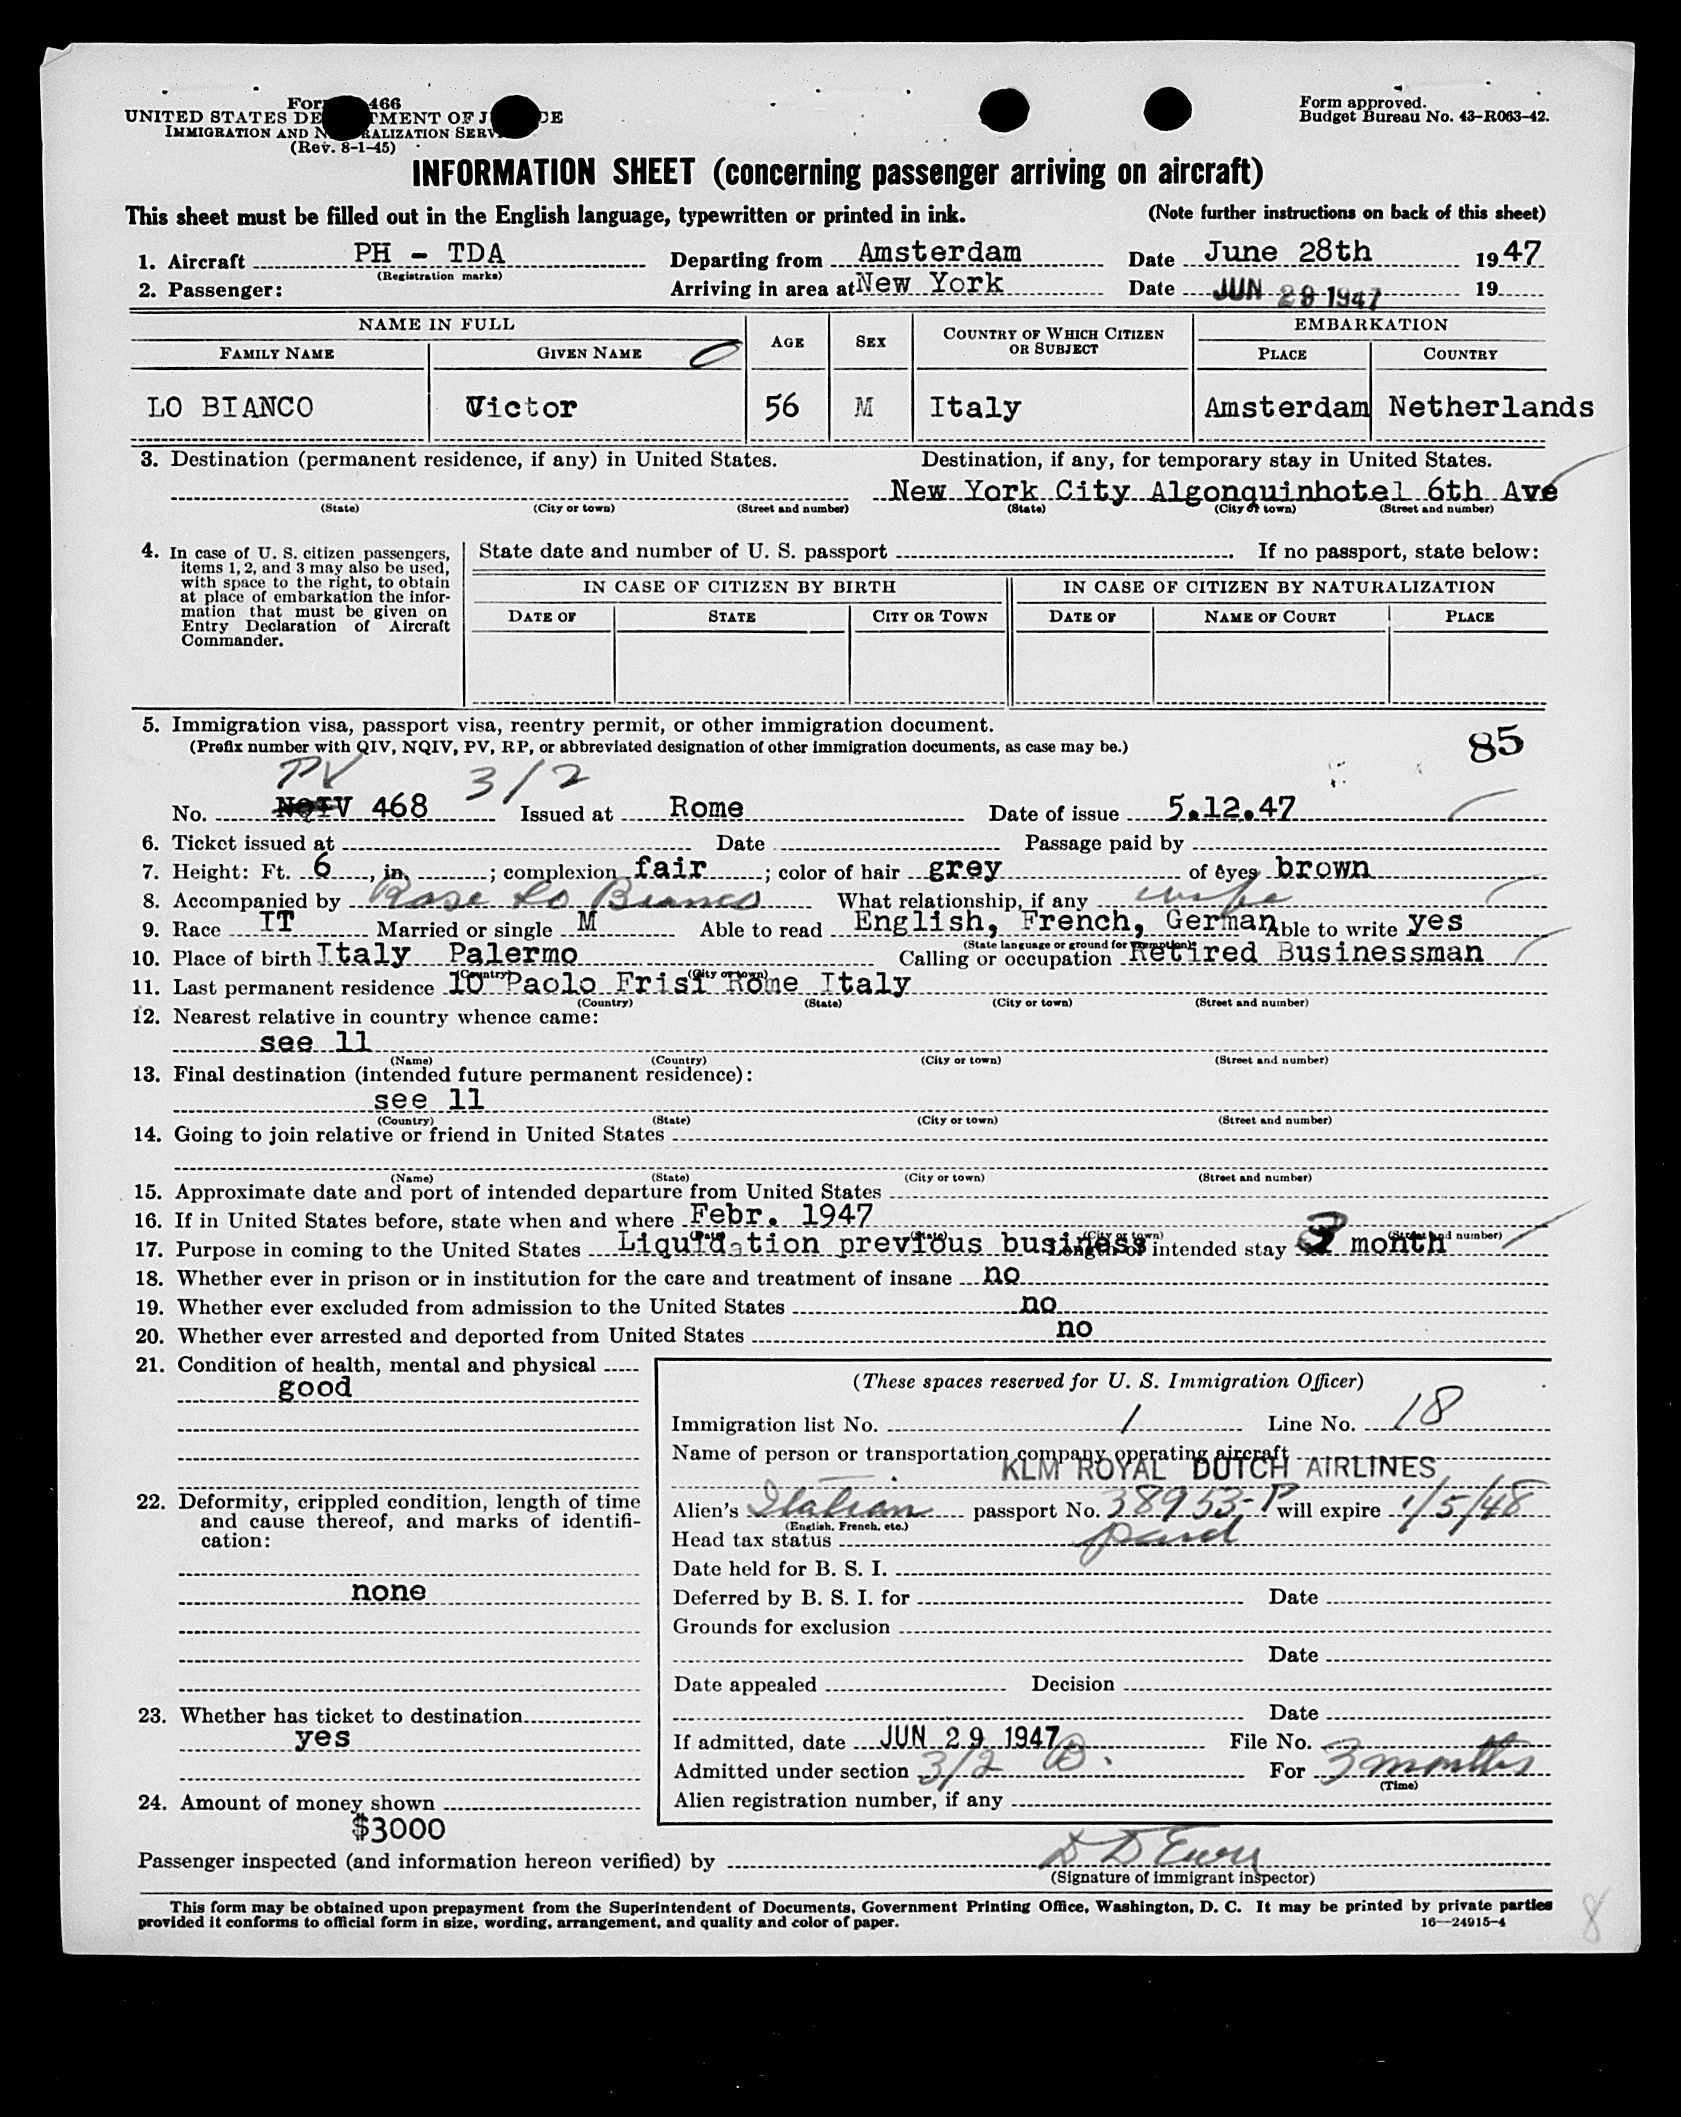 466
UNITED STATES DE MENT OF J
IMMIGRATION AND N RALIZATION SERV
(Rev. 8-1-45)
Form approved.
Budget Bureau No. 43-R063-42.
INFORMATION SHEET (concerning passenger arriving on aircraft)
This sheet must be filled out in the English language, typewritten or printed in ink. (Note further instructions on back of this sheet)
1. Aircraft PH - TDA Departing from Amsterdam Date June 28th 1947
(Registration marks)
2. Passenger: Arriving in area at New York Date JUN 29 1947 19
NAME IN FULL AGE SEX COUNTRY OF WHICH CITIZEN OR SUBJECT EMBARKATION
FAMILY NAME GIVEN NAME PLACE COUNTRY
LO BIANCO Victor 56 M Italy Amsterdam Netherlands
3. Destination (permanent residence, if any) in United States. Destination, if any, for temporary stay in United States.
New York City Algonquinhotel 6th Ave
(State) (City or town) (Street and number) (State) (City or town) (Street and number)
4. In case of U. S. citizen passengers,
items 1, 2, and 3 may also be used,
with space to the right, to obtain
at place of embarkation the infor-
mation that must be given on
Entry Declaration of Aircraft
Commander.
State date and number of U. S. passport . If no passport, state below:
IN CASE OF CITIZEN BY BIRTH IN CASE OF CITIZEN BY NATURALIZATION
DATE OF STATE CITY OR TOWN DATE OF NAME OF COURT PLACE
5. Immigration visa, passport visa, reentry permit, or other immigration document.
(Prefix number with QIV, NQIV, PV, RP, or abbreviated designation of other immigration documents, as case may be.)
85
PV 3/2
No. NQIV 468 Issued at Rome Date of issue 5.12.47
6. Ticket issued at Date Passage paid by
7. Height: Ft. 6, in. ; complexion fair ; color of hair grey of eyes brown
8. Accompanied by Rose Lo Bianco What relationship, if any wife
9. Race IT Married or single M Able to read English, French, German Able to write yes
(State language or ground for exemption)
10. Place of birth Italy Palermo Calling or occupation Retired Businessman
(Country) (City or town)
11. Last permanent residence 10 Paolo Frisi Rome Italy
(Country) (State) (City or town) (Street and number)
12. Nearest relative in country whence came:
see 11
(Name) (Country) (City or town) (Street and number)
13. Final destination (intended future permanent residence):
see 11
(Country) (State) (City or town) (Street and number)
14. Going to join relative or friend in United States
(Name) (State) (City or town) (Street and number)
15. Approximate date and port of intended departure from United States
16. If in United States before, state when and where Febr. 1947
(State) (City or town) (Street and number)
17. Purpose in coming to the United States Liquidation previous business Length of intended stay 3 month
18. Whether ever in prison or in institution for the care and treatment of insane no
19. Whether ever excluded from admission to the United States no
20. Whether ever arrested and deported from United States no
21. Condition of health, mental and physical
good
22. Deformity, crippled condition, length of time
and cause thereof, and marks of identifi-
cation:
none
23. Whether has ticket to destination
yes
24. Amount of money shown
$3000
(These spaces reserved for U. S. Immigration Officer)
Immigration list No. 1 Line No. 18
Name of person or transportation company operating aircraft
KLM ROYAL DUTCH AIRLINES
Alien's Italian passport No. 38953-P will expire 1/5/48
(English, French, etc.)
Head tax status paid
Date held for B. S. I.
Deferred by B. S. I. for Date
Grounds for exclusion
Date
Date appealed Decision
Date
If admitted, date JUN 29 1947 File No.
Admitted under section 3/2 B. For 3 months
(Time)
Alien registration number, if any
Passenger inspected (and information hereon verified) by
(Signature of immigrant inspector)
This form may be obtained upon prepayment from the Superintendent of Documents, Government Printing Office, Washington, D. C. It may be printed by private parties
provided it conforms to official form in size, wording, arrangement, and quality and color of paper. 16—24915-4
8